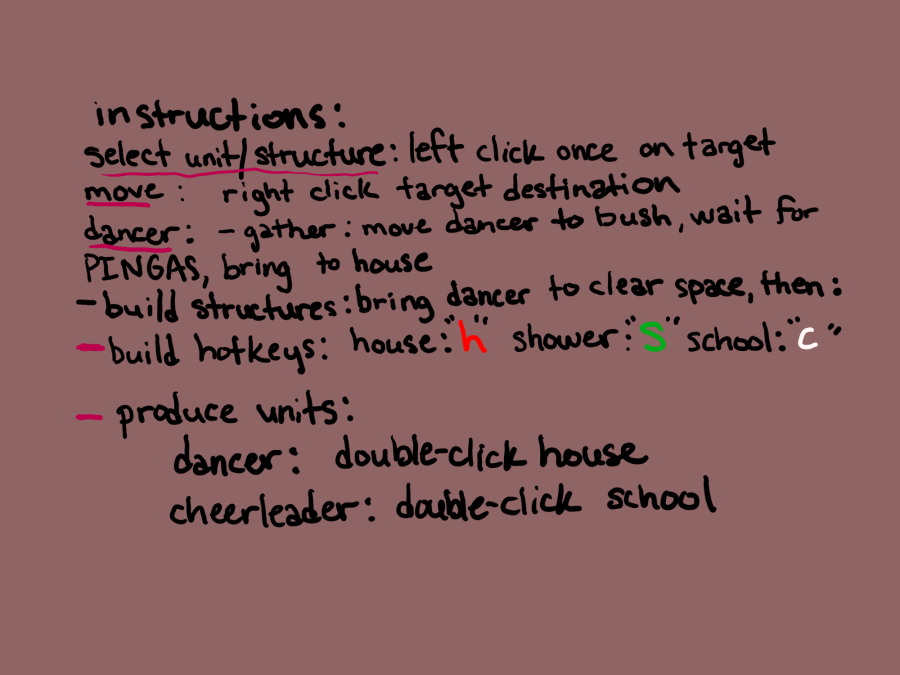 instructions:
select unit/structure: left click once on target
move: right click target destination
dancer: - gather: move dancer to bush, wait for
PINGAS, bring to house
- build structures: bring dancer to clear space, then:
- build hotkeys: house: "h" shower: "S" school: "c"
- produce units:
dancer: double-click house
cheerleader: double-click school